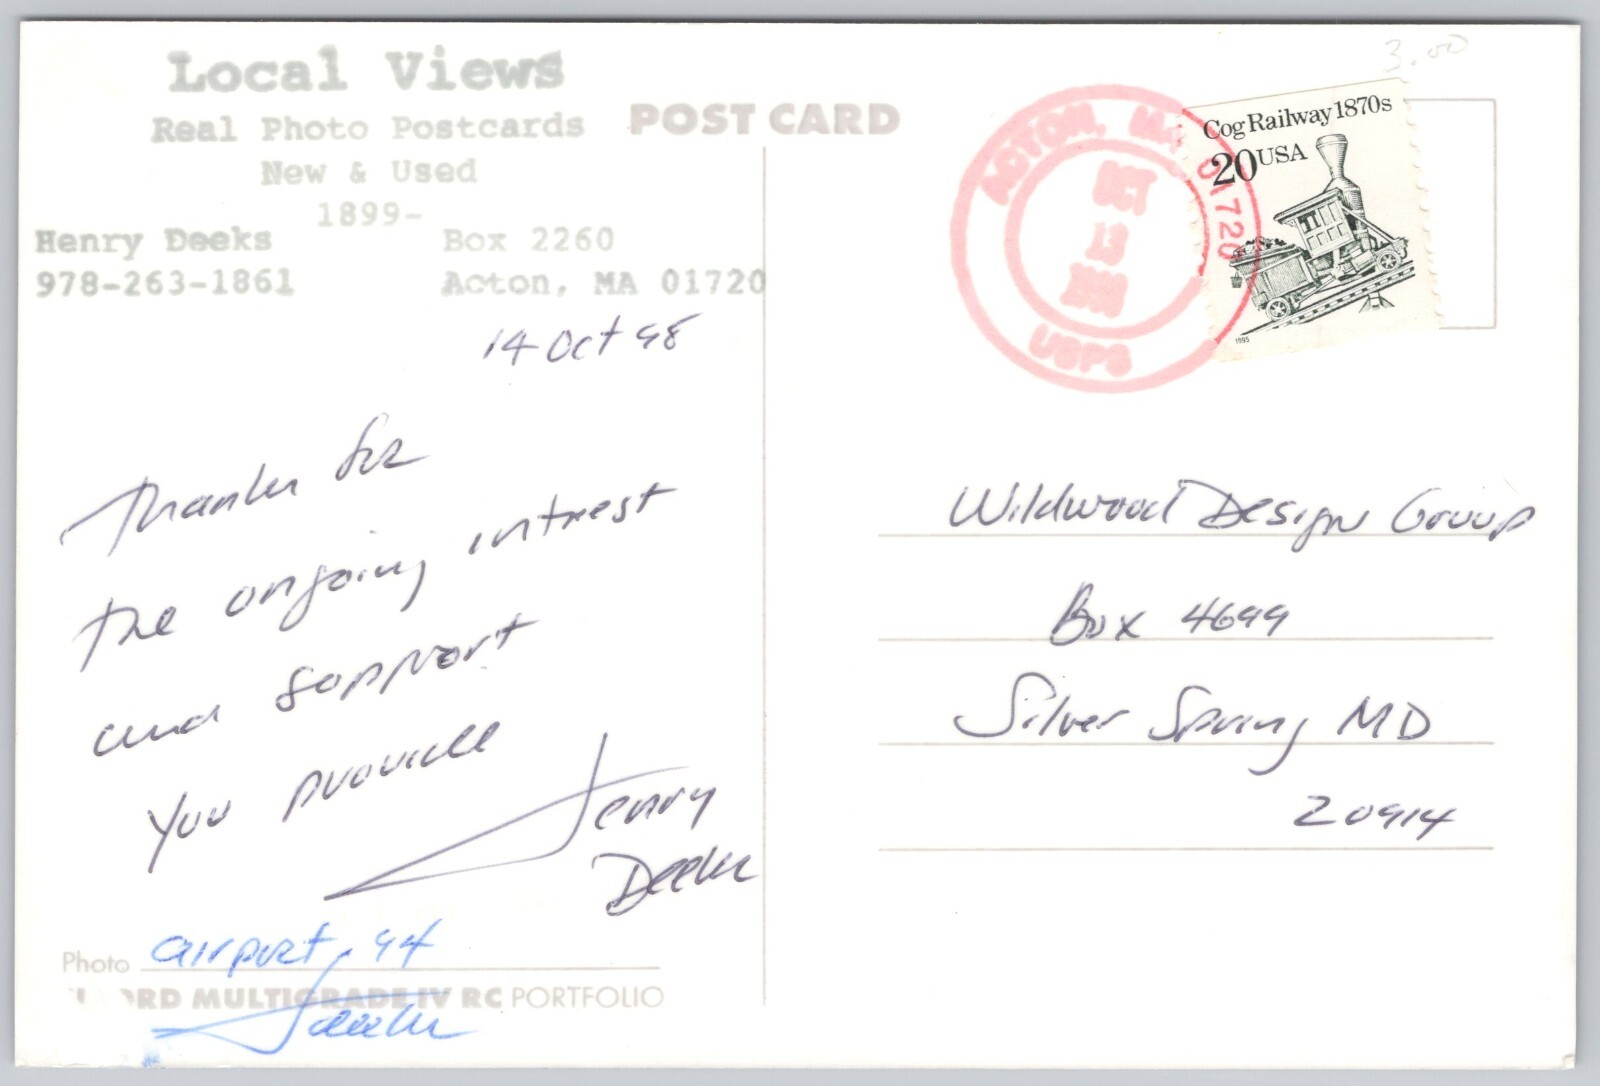 Local Views
Real Photo Postcards
New & Used
1899-
Henry Deeks Box 2260
978-263-1861 Acton, MA 01720
14 Oct 98
Thanks for
the ongoing intrest
and support
you provide
Henry
Deeks
Photo airport, 94
Deeks
ORD MULTIGRADE IV RC PORTFOLIO
POST CARD
3.00
ACTON, MA 01720
OCT
13
1998
USPS
Cog Railway 1870s
20 USA
1995
Wildwood Design Group
Box 4699
Silver Spring MD
20914